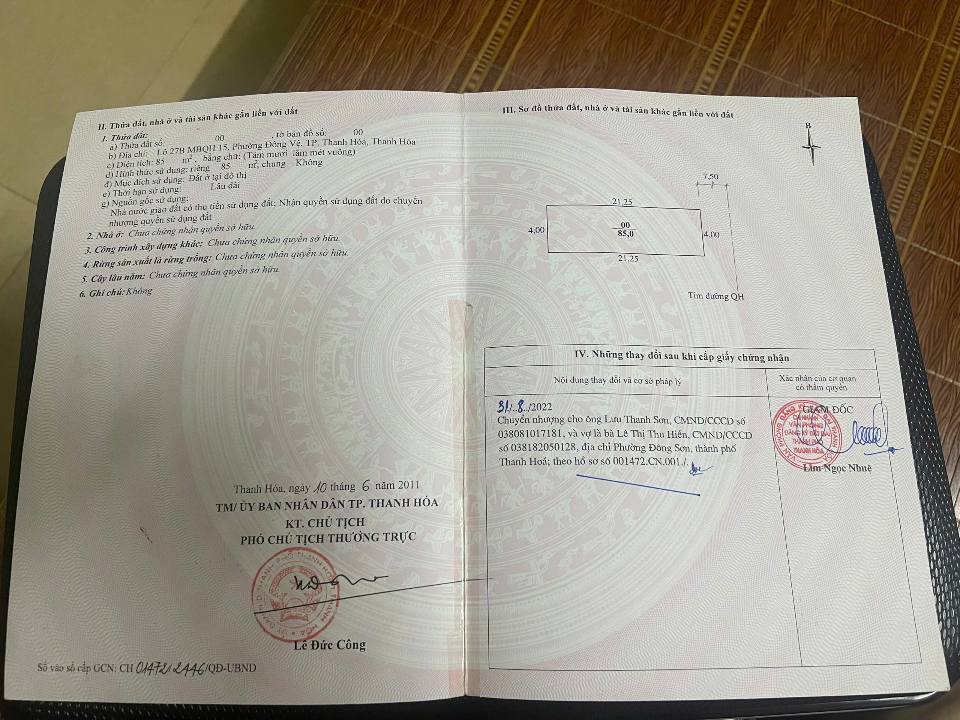 II. Thửa đất, nhà ở và tài sản khác gắn liền với đất
1. Thửa đất:
a) Thửa đất số: 00 , tờ bản đồ số: 00
b) Địa chỉ: Lô 27B MBQH 15, Phường Đông Vệ, TP. Thanh Hóa, Thanh Hóa
c) Diện tích: 85 m², bằng chữ: (Tám mươi lăm mét vuông)
d) Hình thức sử dụng: riêng 85 m², chung Không
đ) Mục đích sử dụng: Đất ở tại đô thị
e) Thời hạn sử dụng: Lâu dài
g) Nguồn gốc sử dụng:
Nhà nước giao đất có thu tiền sử dụng đất; Nhận quyền sử dụng đất do chuyển
nhượng quyền sử dụng đất
2. Nhà ở: Chưa chứng nhận quyền sở hữu.
3. Công trình xây dựng khác: Chưa chứng nhận quyền sở hữu.
4. Rừng sản xuất là rừng trồng: Chưa chứng nhận quyền sở hữu.
5. Cây lâu năm: Chưa chứng nhận quyền sở hữu.
6. Ghi chú: Không
Thanh Hóa, ngày 10 tháng 6 năm 2011
TM/ ỦY BAN NHÂN DÂN TP. THANH HÓA
KT. CHỦ TỊCH
PHÓ CHỦ TỊCH THƯỜNG TRỰC
Lê Đức Công
Số vào sổ cấp GCN: CH 01472/2446/QĐ-UBND
III. Sơ đồ thửa đất, nhà ở và tài sản khác gắn liền với đất
B
7,50
21,25
4,00
00
85,0
4,00
21,25
Tim đường QH
IV. Những thay đổi sau khi cấp giấy chứng nhận
Nội dung thay đổi và cơ sở pháp lý
Xác nhận của cơ quan
có thẩm quyền
31/.8../2022
Chuyển nhượng cho ông Lưu Thanh Sơn, CMND/CCCD số
038081017181, và vợ là bà Lê Thị Thu Hiền, CMND/CCCD
số 038182050128, địa chỉ Phường Đông Sơn, thành phố
Thanh Hoá; theo hồ sơ số 001472.CN.001./.
GIÁM ĐỐC
CHI NHÁNH
VĂN PHÒNG
ĐĂNG KÝ ĐẤT ĐAI
THÀNH PHỐ
THANH HÓA
Lim Ngọc Nhuệ